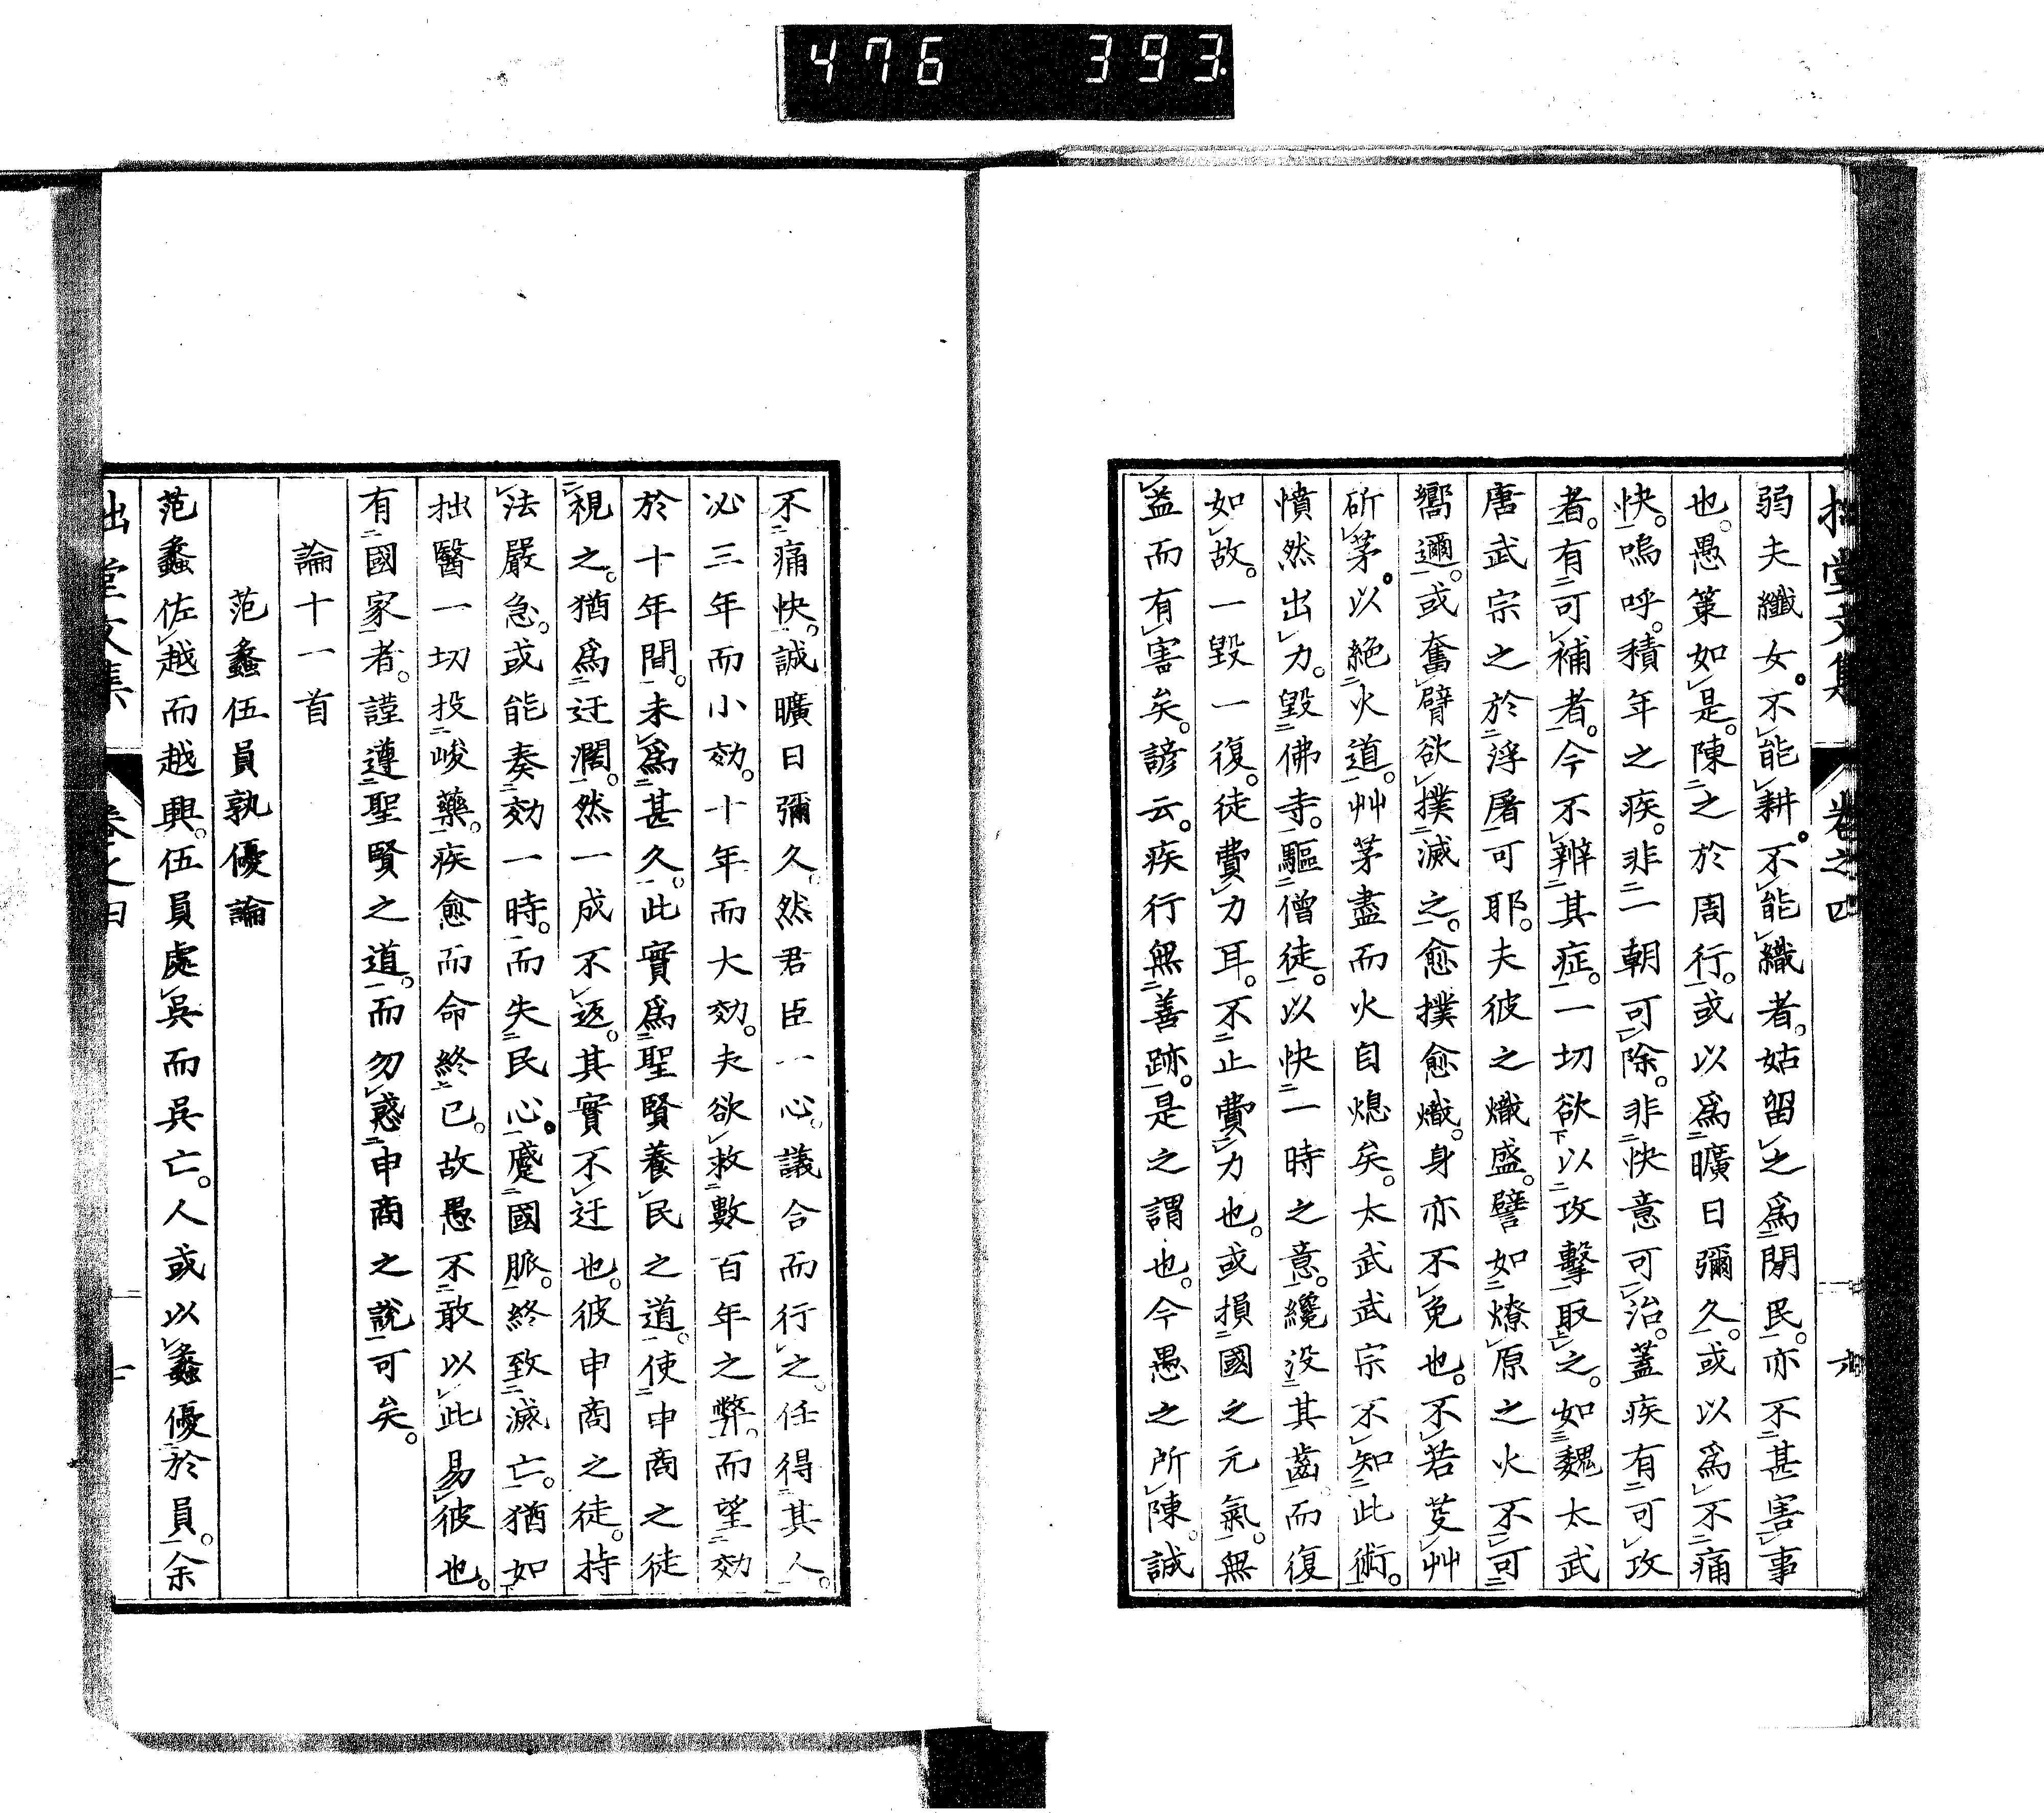 476 393
拙堂文集 卷之四 九
弱夫纖女。不能耕。不能織者。姑留之爲閒民。亦不甚害事
也。愚策如是。陳之於周行。或以爲曠日彌久。或以爲不痛
快。嗚呼。積年之疾。非一朝可除。非快意可治。蓋疾有可攻
者。有可補者。今不辨其症。一切欲以攻擊取之。如魏太武
唐武宗之於浮屠可耶。夫彼之熾盛。譬如燎原之火不可
嚮邇。或奮臂欲撲滅之。愈撲愈熾。身亦不免也。不若芟艸
斫茅。以絕火道。艸茅盡而火自熄矣。太武武宗不知此術。
憤然出力。毀佛寺。驅僧徒。以快一時之意。纔没其齒而復
如故。一毀一復。徒費力耳。不止費力也。或損國之元氣。無
益而有害矣。諺云。疾行無善跡。是之謂也。今愚之所陳。誠
不痛快。誠曠日彌久。然君臣一心。議合而行之。任得其人。
必三年而小効。十年而大効。夫欲救數百年之弊。而望効
於十年間。未爲甚久。此實爲聖賢養民之道。使申商之徒
視之。猶爲迂濶。然一成不返。其實不迂也。彼申商之徒。持
法嚴急。或能奏効一時。而失民心。蹙國脈。終致滅亡。猶如
拙醫一切投峻藥。疾愈而命終已。故愚不敢以此易彼也。
有國家者。謹遵聖賢之道。而勿惑申商之說可矣。
論十一首
范蠡伍員孰優論
范蠡佐越而越興。伍員處吳而吳亡。人或以蠡優於員。余
拙堂文集 卷之四 十